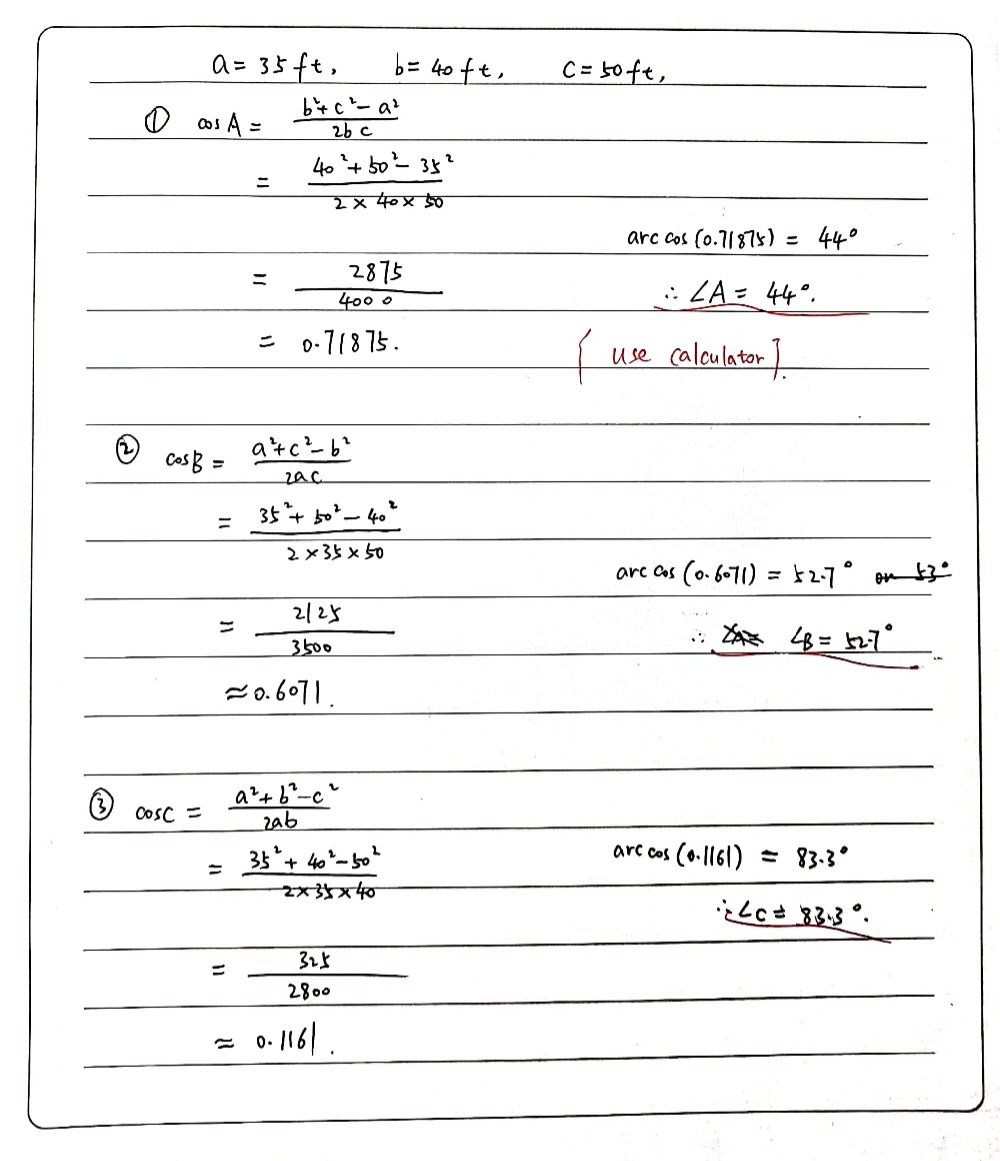 a = 35 ft, b = 40 ft, C = 50 ft,
① cos A = b²+c²-a² / 2bc
= 40²+50²-35² / 2×40×50
arc cos (0.71875) = 44°
= 2875 / 4000
∴ ∠A = 44°.
= 0.71875.
[ use calculator ].
② cosB = a²+c²-b² / 2ac
= 35²+50²-40² / 2×35×50
arc cos (0.6071) = 52.7° or 53°
= 2125 / 3500
∴ ∠A= ∠B = 52.7°
≈0.6071.
③ cosC = a²+b²-c² / 2ab
= 35²+40²-50² / 2×35×40
arc cos (0.1161) = 83.3°
∴ ∠C = 83.3°.
= 325 / 2800
≈ 0.1161.